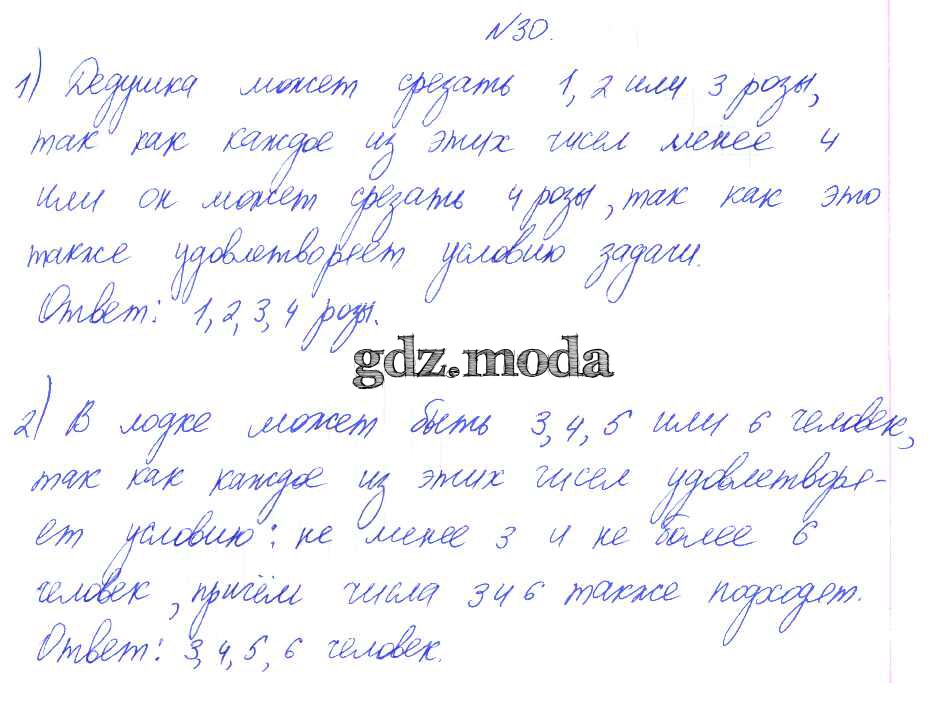 №30.
1) Дедушка может срезать 1, 2 или 3 розы,
так как каждое из этих чисел менее 4
или он может срезать 4 розы, так как это
также удовлетворяет условию задачи.
Ответ: 1, 2, 3, 4 розы.
gdz.moda
2) В лодке может быть 3, 4, 5 или 6 человек,
так как каждое из этих чисел удовлетворя-
ет условию: не менее 3 и не более 6
человек, причём числа 3 и 6 также подходят.
Ответ: 3, 4, 5, 6 человек.